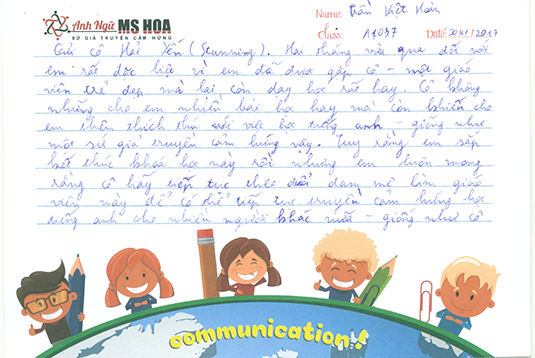 Anh Ngữ MS HOA
SỨ GIẢ TRUYỀN CẢM HỨNG
Name: Trần Việt Hoàn
Class: A1037 Date: 20/11/2017
Gửi cô Hải Yến (Stunning). Hai tháng vừa qua đối với
em rất đặc biệt vì em đã được gặp cô - một giáo
viên trẻ đẹp mà lại còn dạy học rất hay. Cô không
những cho em nhiều bài học hay mà còn khiến cho
em thêm thích thú với việc học tiếng anh - giống như
một sứ giả truyền cảm hứng vậy. Tuy rằng em sắp
kết thúc khoá học này rồi nhưng em luôn mong
rằng cô hãy tiếp tục theo đuổi đam mê làm giáo
viên này để có thể tiếp tục truyền cảm hứng học
tiếng anh cho nhiều người khác nữa - giống như cô
communication!